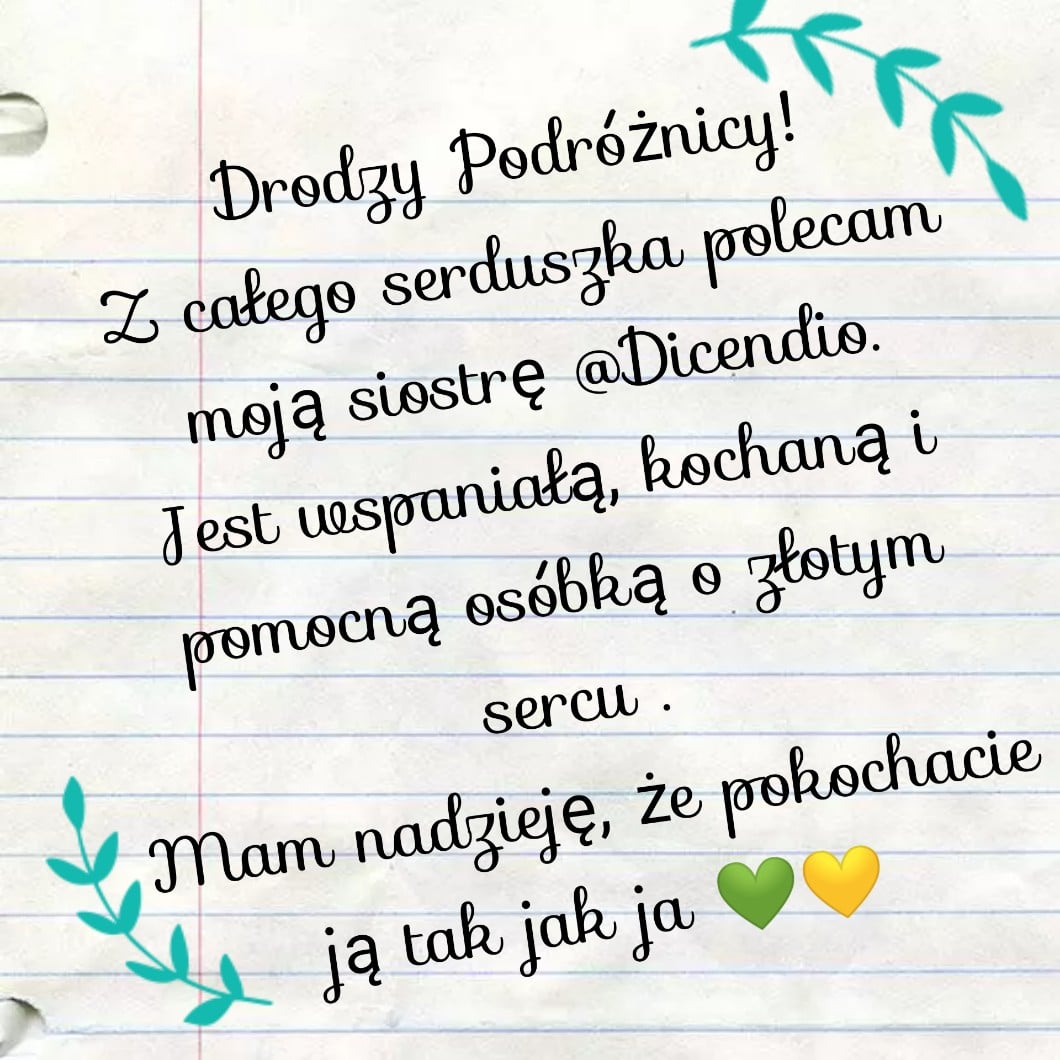 Drodzy Podróżnicy!
Z całego serduszka polecam
moją siostrę @Dicendio.
Jest wspaniałą, kochaną i
pomocną osóbką o złotym
sercu .
Mam nadzieję, że pokochacie
ją tak jak ja 💚💛